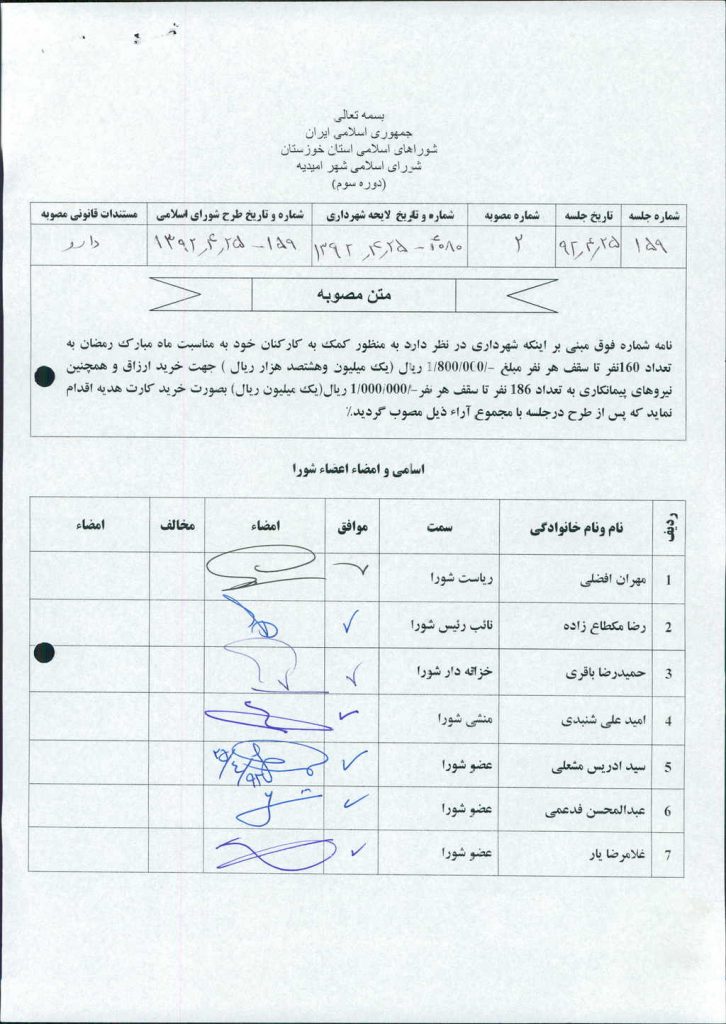 بسمه تعالی
جمهوری اسلامی ایران
شوراهای اسلامی استان خوزستان
شورای اسلامی شهر امیدیه
(دوره سوم)
شماره جلسه تاریخ جلسه شماره مصوبه شماره و تاریخ لایحه شهرداری شماره و تاریخ طرح شورای اسلامی مستندات قانونی مصوبه
۱۵۹ ۹۲,۴,۲۵ ۲ ۱۳۹۲,۴,۲۵ ۱۵۹-۱۳۹۲,۴,۲۵ دارد
متن مصوبه
نامه شماره فوق مبنی بر اینکه شهرداری در نظر دارد به منظور کمک به کارکنان خود به مناسبت ماه مبارک رمضان به
تعداد 160نفر تا سقف هر نفر مبلغ -/1/800/000 ریال (یک میلیون وهشتصد هزار ریال ) جهت خرید ارزاق و همچنین
نیروهای پیمانکاری به تعداد 186 نفر تا سقف هر نفر-/1/000/000 ریال(یک میلیون ریال) بصورت خرید کارت هدیه اقدام
نماید که پس از طرح درجلسه با مجموع آراء ذیل مصوب گردید.٪
اسامی و امضاء اعضاء شورا
ردیف نام ونام خانوادگی سمت موافق امضاء مخالف امضاء
1 مهران افضلی ریاست شورا
2 رضا مکطاع زاده نائب رئیس شورا
3 حمیدرضا باقری خزانه دار شورا
4 امید علی شنبدی منشی شورا
5 سید ادریس مشعلی عضو شورا ۹۲/۴/۲۵
6 عبدالمحسن فدعمی عضو شورا
7 غلامرضا یار عضو شورا